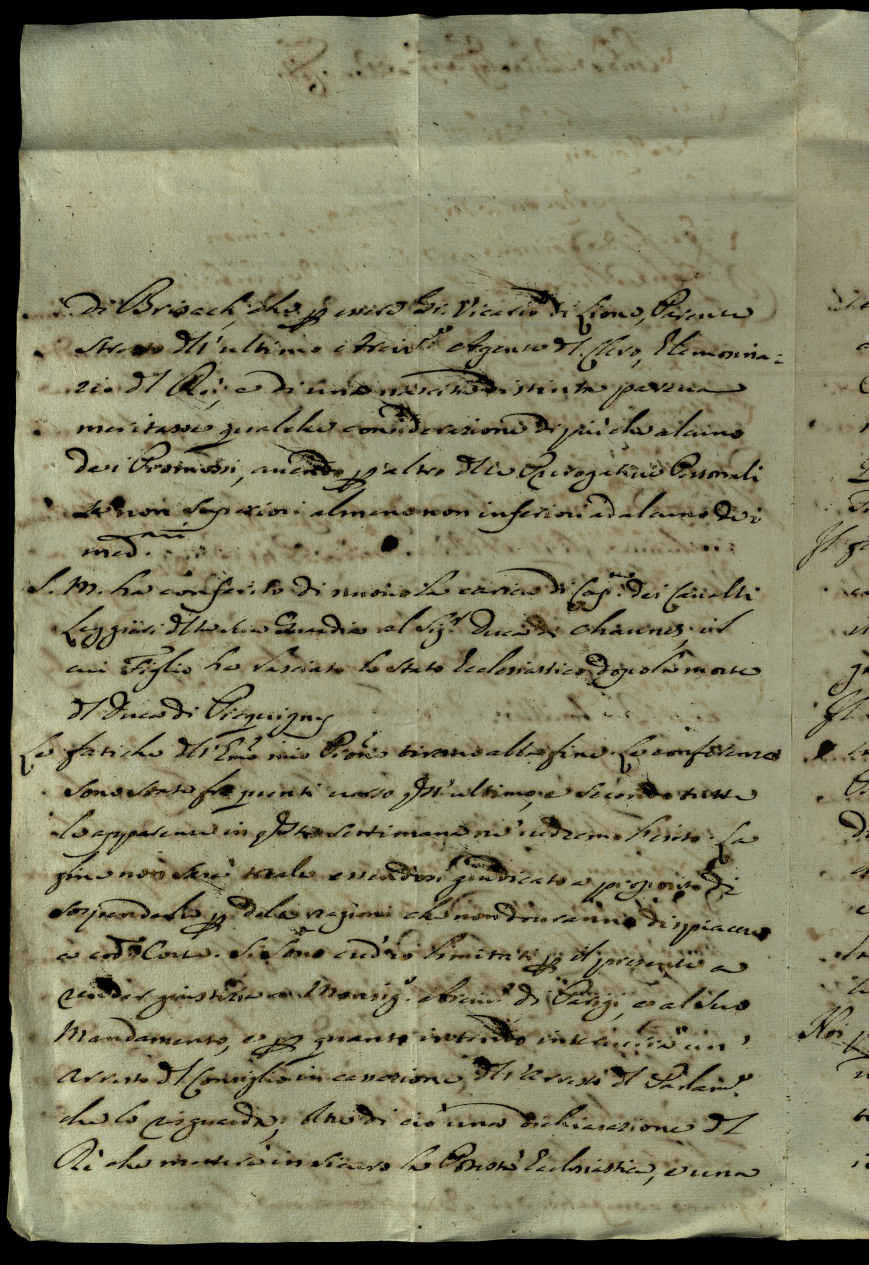 di Brisach, che p essere Gr. Vicario di Lione, Parente
stretto dell'ultimo Arciv.o Agente del Clero, Elemosina=
rio del Rè, e di una nascita distinta pareva
meritasse qualche considerazione di più che alcuno
dei Promossi, avendo p altro delle Prerogative Personali
se non superiori almeno non inferiori ad alcuno dei
med.mi
S. M. ha conferito di nuovo la carica di Cap.no dei Cavalli
Leggieri della sua Guardia al Sig.r Duca di Chaunes, il
cui Figlio ha lasciato lo stato Ecclesiastico dopo la morte
del Duca di Piequigny
Le fatiche dell'Emo mio Prone tirano alla fine. Le conferenze
sono state frequenti verso quest'ultimo, e secondo tutte
le apparenze in questa settimana ne vedremo l'esito. La
fine non sarà totale essendosi giudicato a proposito di
sospenderla p delle ragioni che non dovranno dispiacere
a cod.a Corte. Si sono limitati p il presente a
render giustizia a Monsig.r Arciv.o di Parigi, e al suo
Mandamento, e p quanto intendo un'
Arresto del Consiglio in cassazione dell'arresto del Parlam.o
che lo risguarda; oltre di ciò una dichiarazione del
Rè che metterà in sicuro la Potestà Ecclesiastica, e una